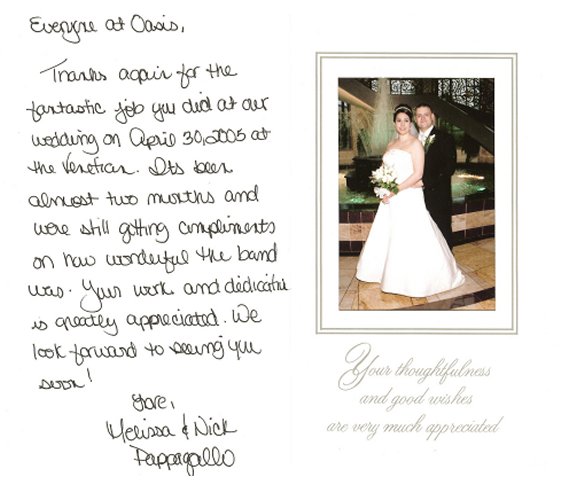 Everyone at Oasis,
Thanks again for the
fantastic job you did at our
wedding on April 30, 2005 at
the Venetian. Its been
almost two months and
were still getting compliments
on how wonderful the band
was. Your work and dedication
is greatly appreciated. We
look forward to seeing you
soon!
Love,
Melissa & Nick
Pappagallo
Your thoughtfulness
and good wishes
are very much appreciated